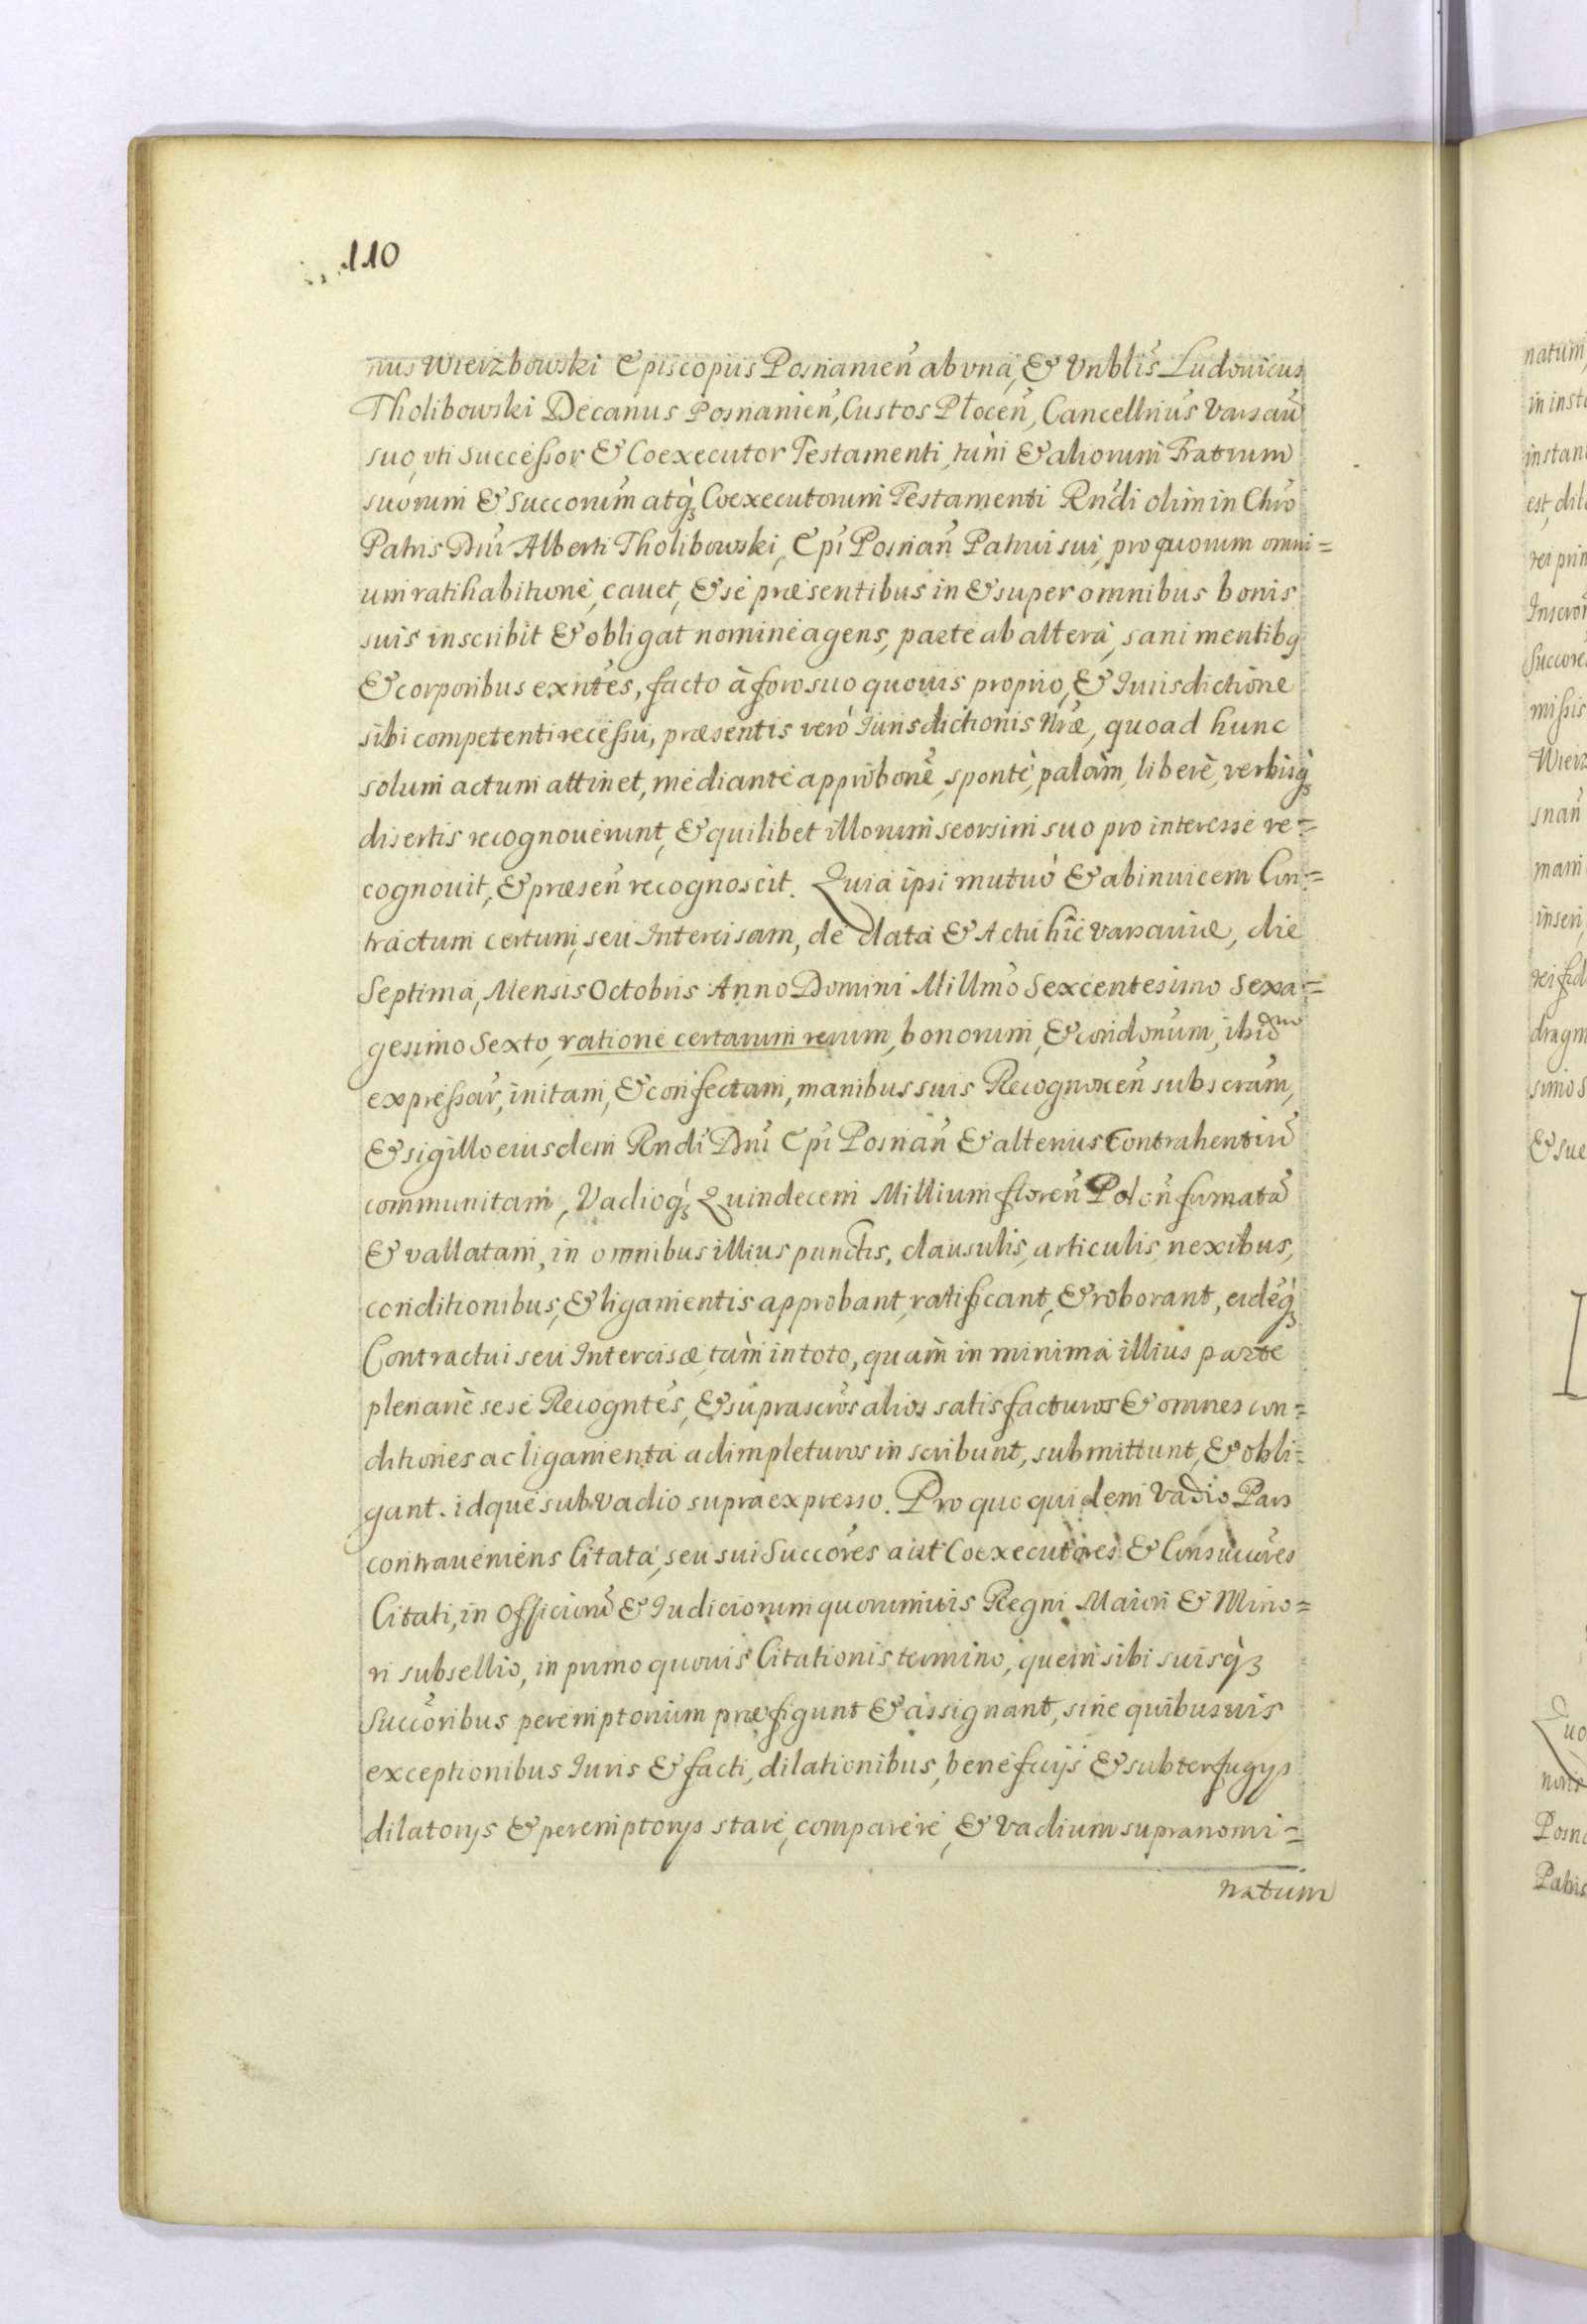 110
nus Wierzbowski Episcopus Posnanien̄ ab vna, & Vnblis̄ Ludouicus
Tholibowski Decanus Posnanien̄, Custos Płocen̄, Cancellrius Varsau̅
suo, vti Successor & Coexecutor Testamenti, tùm & aliorum Fratrum
suorum & Succorum̄ atq́ꝫ Coexecutorum Testamenti Rndi olim in Chro
Patris Dni Alberti Tholibowski, Epi Posnan̄ Patrui sui, pro quorum omni=
um ratihabitione, cauet, & se præsentibus in & super omnibus bonis
suis inscribit & obligat nomine agens, parte ab altera, sani mentibꝯ
& corporibus exntes, facto à foro suo quouis proprio, & Iurisdictione
sibi competenti recessu, præsentis verò Iurisdictionis Nræ, quoad hunc
solum actum attinet, mediante approbone, spontè, palàm, liberè, verbisq́ꝫ
disertis recognouerunt, & quilibet illorum seorsim suo pro interesse re=
cognouit, & præsen̄ recognoscit. Quia ipsi mutuò & abinuicem Con=
tractum certum, seu Intercisam, de data & Actu hic Varsauiæ, die
Septima, Mensis Octobris Anno Domini Millmo Sexcentesimo Sexa=
gesimo Sexto, ratione certarum rerum, bonorum, & condonum, ibid̄no
expressar̄, initam, & confectam, manibus suis Recognoꝛen̄ subscram̄,
& sigillo eiusdem Rndi Dni Epi Posnan̄ & alterius Contrahentiū
communitam, Vadioq́ꝫ Quindecem Millium floren̄ Polon̄ firmatā
& vallatam, in omnibus illius punctis, clausulis, articulis, nexibus,
conditionibus, & ligamentis approbant, ratificant, & roborant, eidēq́ꝫ
Contractui seu Intercisæ, tàm in toto, quàm in minima illius parte
plenariè sese Recogntes, & suprascros alios satisfacturos & omnes con=
ditiones ac ligamenta adimpleturos inscribunt, submittunt, & obli=
gant. idque sub vadio supraexpresso. Pro quo quidem Vadio Pars
contraueniens Citata, seu sui Succores aut Coexecutores & Consuccores
Citati, in Officiorū & Iudiciorum quorumuis Regni Maiori & Mino=
ri subsellio, in primo quouis Citationis termino, quem sibi suisq̀ꝫ
Succoribus peremptorium præfigunt & assignant, sine quibusuis
exceptionibus Iuris & facti, dilationibus, beneficijs & subterfugijs
dilatorijs & peremptorijs stare, comparere, & Vadium supranomi=
natum